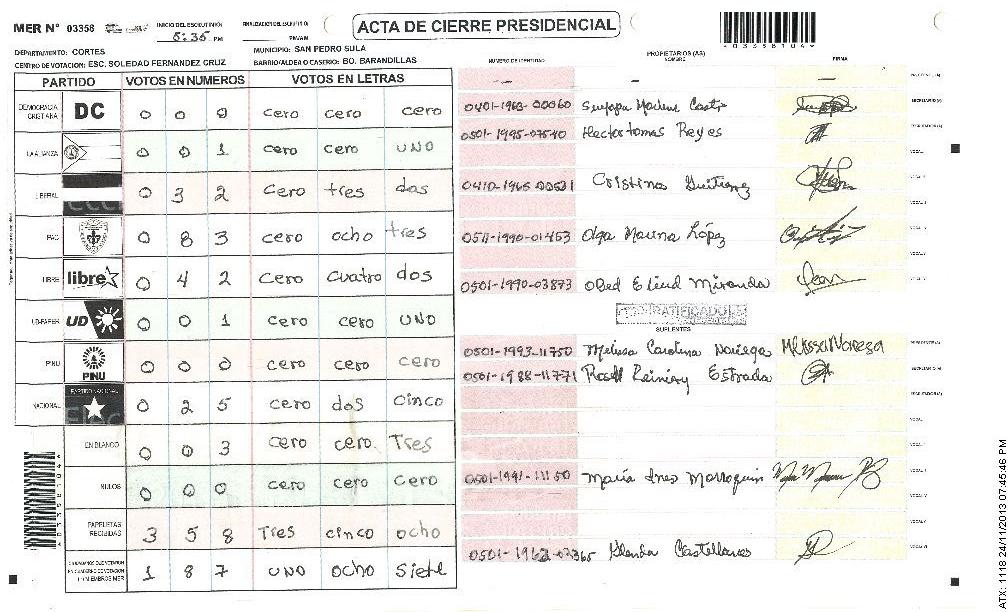 MER N° 03358 INICIO DEL ESCRUTINIO: 5:35 PM PM/AM
ACTA DE CIERRE PRESIDENCIAL
DEPARTAMENTO: CORTES MUNICIPIO: SAN PEDRO SULA
CENTRO DE VOTACION: ESC. SOLEDAD FERNANDEZ CRUZ BARRIO/ALDEA O CASERIO: BO. BARANDILLAS
NUMERO DE IDENTIDAD PROPIETARIOS (AS) NOMBRE FIRMA
PARTIDO VOTOS EN NUMEROS VOTOS EN LETRAS
DEMOCRACIA CRISTIANA DC 0 0 0 cero cero cero
LA ALIANZA 0 0 1 cero cero UNO
LIBERAL 0 3 2 cero tres dos
PAC 0 8 3 cero ocho tres
LIBRE libre 0 4 2 cero cuatro dos
UD-FAPER UD 0 0 1 cero cero UNO
PINU PINU 0 0 0 cero cero cero
NACIONAL PARTIDO NACIONAL 0 2 5 cero dos cinco
EN BLANCO 0 0 3 cero cero Tres
NULOS 0 0 0 cero cero cero
PAPELETAS RECIBIDAS 3 5 8 Tres cinco ocho
1 8 7 UNO ocho siete
0401-1963-00060
0501-1995-07540 Hector tomas Reyes
0410-1965-00531 Cristina
0511-1990-01453 Olga Marina López
0501-1990-03873 Obed Eliud Miranda
SUPLENTES
0501-1993-11750 Melissa Carolina Noriega
0501-1988-11771 Estrada
0501-1991-11150 María Ines Marroquin
Glenda Castellanos
ATX: 1118 24/11/2013 07:45:46 PM